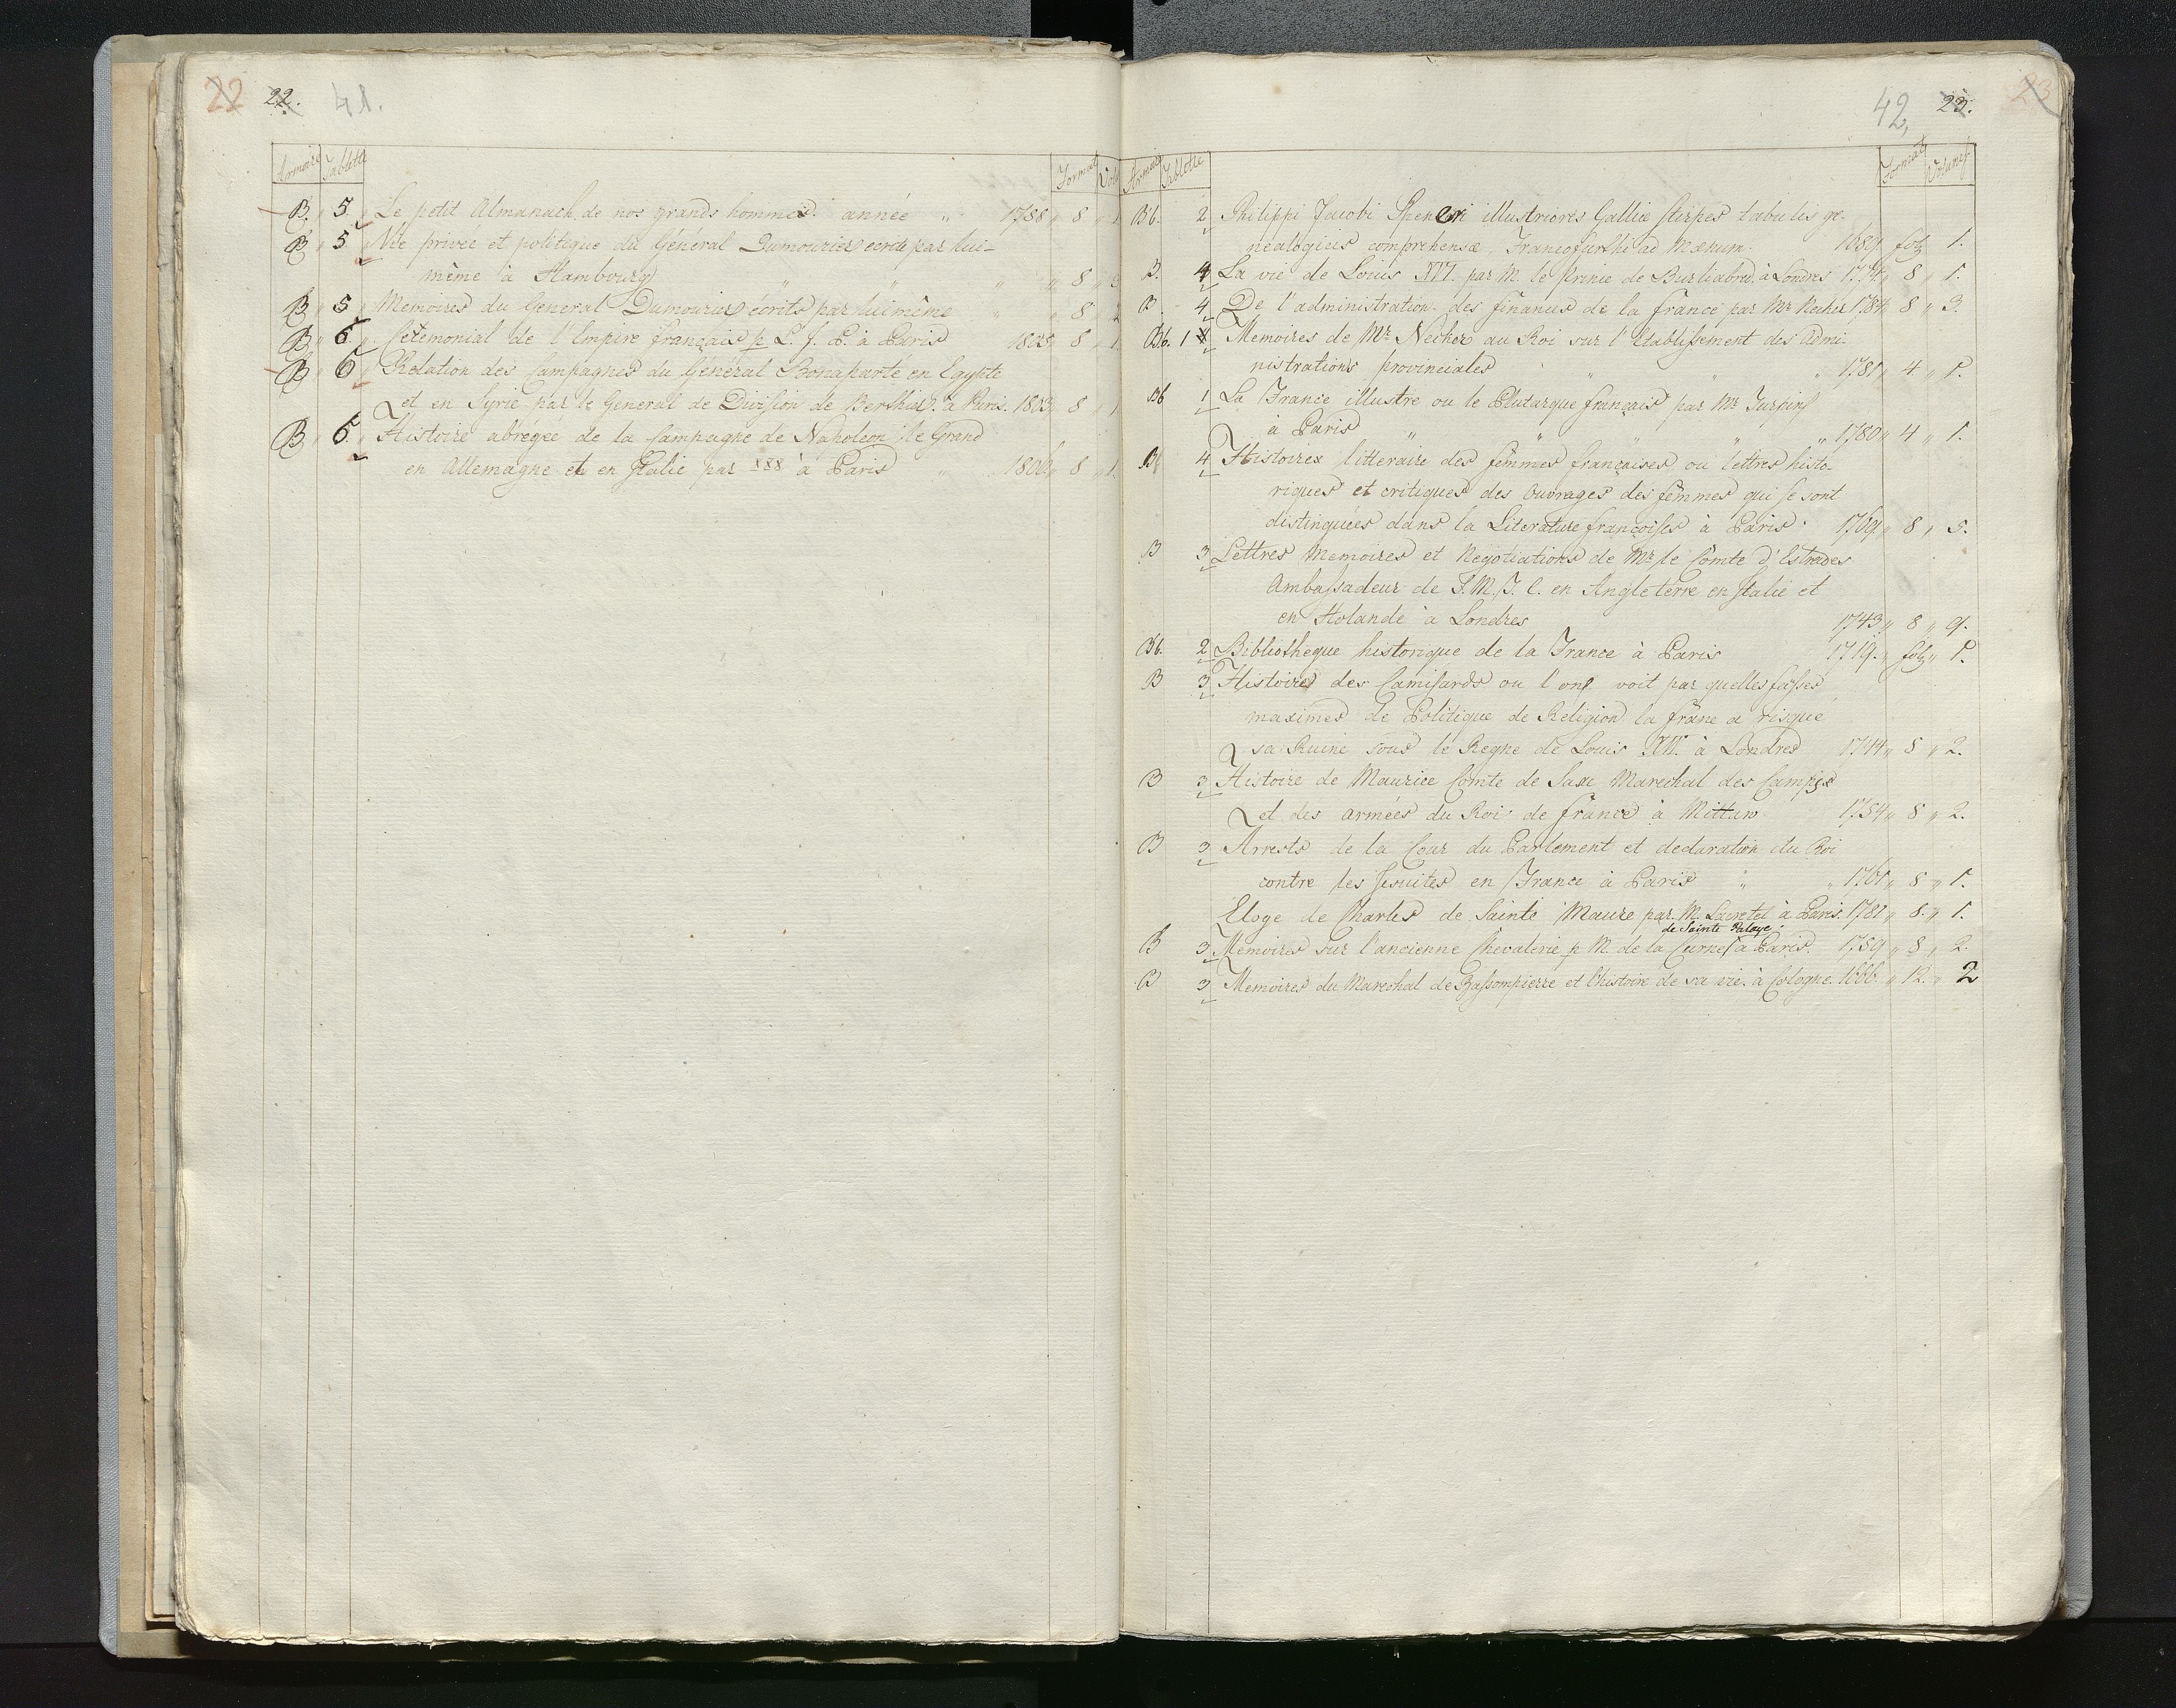 22 22. 41.
Armoire Tablette Format Vol.
B. „ 5. „ Le petit Almanach de nos grands hommes. année „ 1788 „ 8 „ 1.
B „ 5 „ Vie privée et politique du Général Dumourier ecrite par lui-
même à Hambourg „ „ „ „ 8 „
B „ 5 „ Memoires du General Dumourier écrits par lui même „ „ 8 „ 2
B „ 6. „ Cérémonial de l'Empire français p L. J. P. à Paris 1805 „ 8 „ 1.
B „ 6 „ Relation des Campagnes du Général Bonaparte en Egypte
et en Syrie par le General de Division de Berthier. à Paris. 1803 „ 8 „ 1
B „ 6. „ Histoire abrégée de la Campagne de Napoleon le Grand
en Allemagne et en Italie par XXX à Paris „ 1806 „ 8 „ 1.
42, 23. 23
Armoire Tablette Format Volumes
Bb. 2 Philippi Jacobi Speneri illustriores Galliæ stirpes tabulis ge-
nealogicis comprehensæ Francofurthi ad Mœnum. 1689. fol „ 1.
B. 4 La vie de Louis XVI. par M. le Prince de à Londres 1774 „ 8 „ 1.
B 4 De l'administration des finances de la france par Mr Necker 1784 „ 8 „ 3.
Bb. 1 Memoires de Mr Necker au Roi sur l'Etablissement des Admi-
nistrations provinciales „ „ „ 1781 „ 4 „ 1.
Bb 1 La France illustre ou le Plutarque français par Mr Turpin
à Paris „ „ „ „ „ 1780 „ 4 „ 1.
B 4 Histoire litteraire des femmes françaises ou lettres histo-
riques et critiques des Ouvrages des femmes qui se sont
distinguées dans la Literature françoises à Paris. 1769 „ 8 „ 5.
B 3 Lettres Memoires et Negotiations de Mr le Comte d'Estrades
Ambassadeur de S. M. T. C. en Angleterre en Italie et
en Holande à Londres 1743 „ 8 „ 9.
Bb. 2 Bibliotheque historique de la France à Paris 1719. „ fol „ 1.
B 3 Histoire des Camisards ou l'on voit par quelles fausses
maximes de Politique de Religion la frane a risque
sa Ruine sous le Regne de Louis XIV. à Londres 1744 „ 8 „ 2.
B 3 Histoire de Maurice Comte de Saxe Marechal des Camps
et des armées du Roi de france à Mittaw 1754 „ 8 „ 2.
B 3 Arrests de la Cour du Parlement et declaration du Roi
contre les Jesuites en France à Paris „ „ 1761 „ 8 „ 1.
Eloge de Charles de Sainte Maure par M. Lacretel à Paris. 1781 „ 8. „ 1.
de Sainte Palaye.
B 3 Memoires sur l'ancienne Chevalerie p M. de la Curne à Paris. 1759 „ 8 „ 2.
B 3 Memoires du Marechal de Bassompierre et l'histoire de sa vie. à Cologne. 1666. „ 12. „ 2